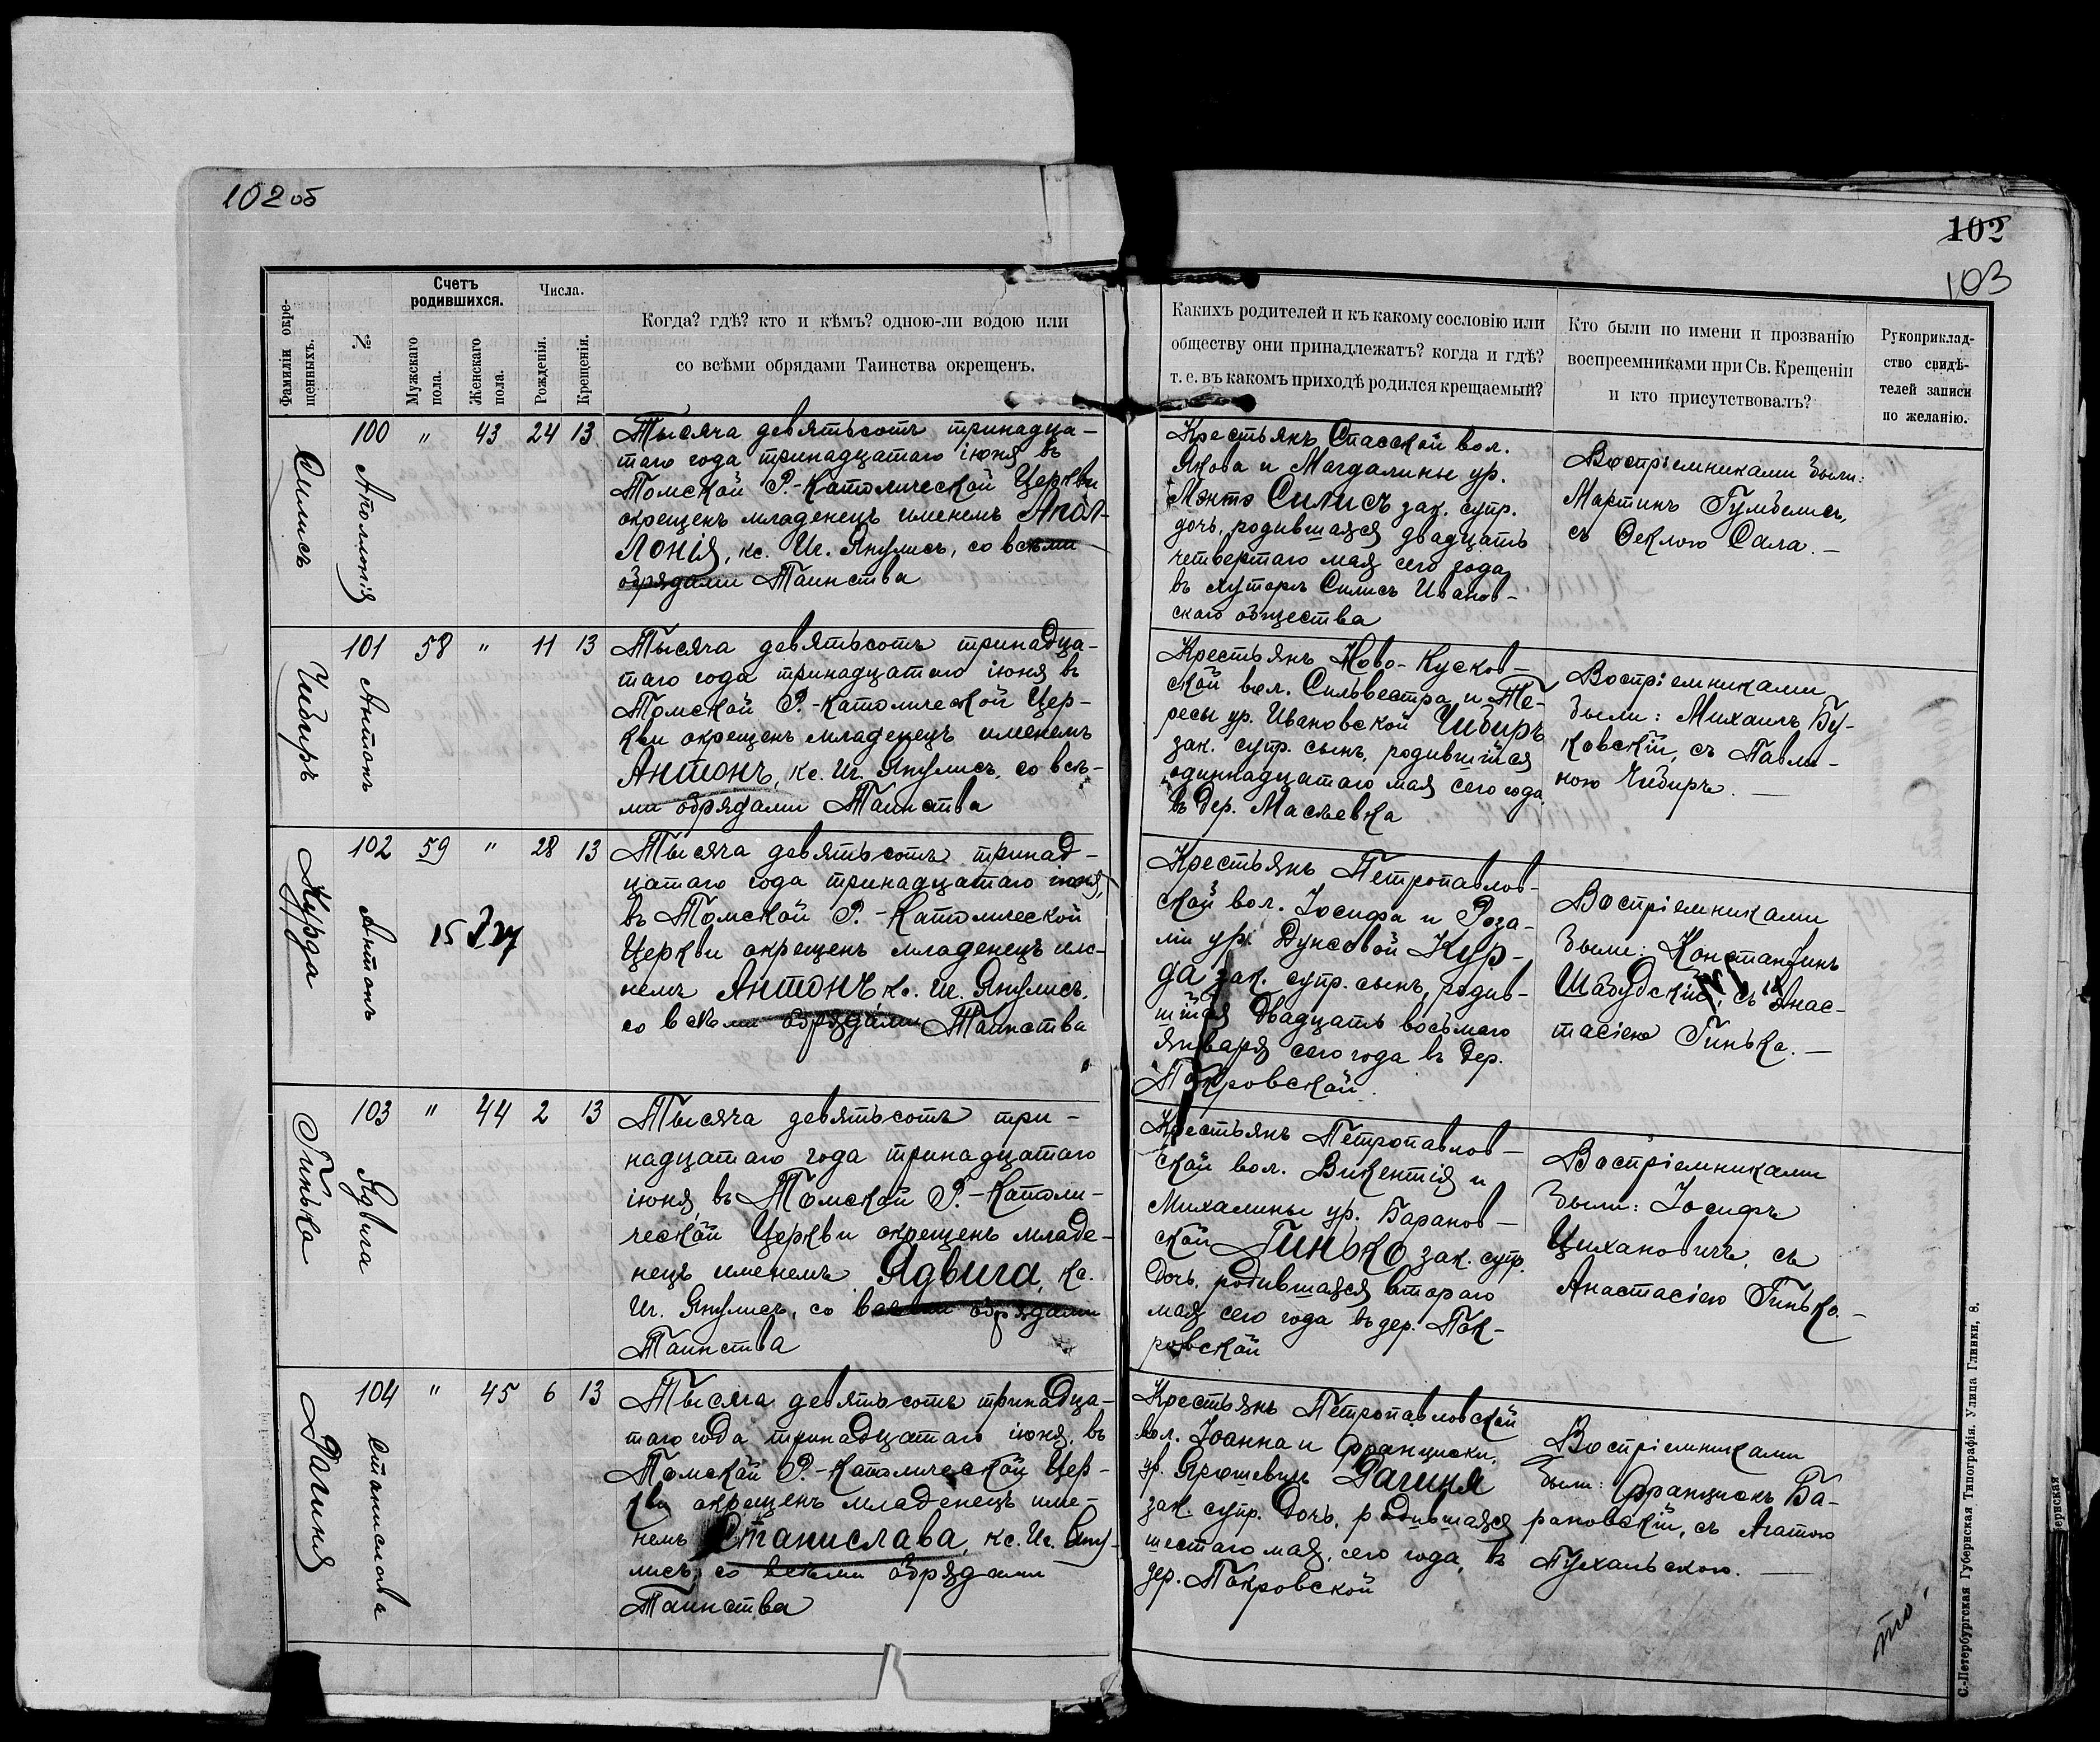 102 об
102
103
Фамиліи окре-
щенныхъ.
№
Счетъ
родившихся.
Мужскаго
пола.
Женскаго
пола.
Числа.
Рожденія.
Крещенія.
Когда? гдѣ? кто и кѣмъ? одною-ли водою или
со всѣми обрядами Таинства окрещенъ.
Какихъ родителей и къ какому сословію или
обществу они принадлежатъ? когда и гдѣ?
т. е. въ какомъ приходѣ родился крещаемый?
Кто были по имени и прозванію
воспреемниками при Св. Крещеніи
и кто присутствовалъ?
Рукоприклад-
ство свидѣ-
телей записи
по желанію.
Силисъ
100
Аполлонія
" 43 24 13
Тысяча девятьсотъ тринадца-
таго года тринадцатаго іюня въ
Томской Р.-Католической Церкви
окрещенъ младенецъ именемъ Апол-
лонія, кс. Иг. Янулисъ, со всѣми
обрядами Таинства
Крестьянъ Спасской вол.
Якова и Магдалины ур.
Мэнтэ Силисъ зак. супр.
дочь, родившаяся двадцать
четвертаго мая сего года
въ хуторѣ Силисъ Иванов-
скаго общества
Воспріемниками были:
Мартинъ Гумбелисъ,
съ Феклою Сала. —
Чибиръ
101
Антонъ
58 " 11 13
Тысяча девятьсотъ тринадца-
таго года тринадцатаго іюня въ
Томской Р.-Католической Цер-
кви окрещенъ младенецъ именемъ
Антонъ, кс. Иг. Янулисъ, со всѣ-
ми обрядами Таинства
Крестьянъ Ново-Кусков-
ской вол. Сильвестра и Те-
ресы ур. Ивановской Чибиръ
зак. супр. сынъ, родившійся
одиннадцатаго мая сего года
въ дер. Маліевка
Воспріемниками
были: Михаилъ Бу-
ковскій, съ Павли-
ною Чибиръ. —
Курда
102
Антонъ
59 " 28 13
Тысяча девятьсотъ тринад-
цатаго года тринадцатаго іюня,
въ Томской Р.-Католической
Церкви окрещенъ младенецъ име-
немъ Антонъ, кс. Иг. Янулисъ,
со всѣми обрядами Таинства
Крестьянъ Петропавлов-
ской вол. Іосифа и Роза-
ліи ур. Дунсовой Кур-
да зак. супр. сынъ, родив-
шійся двадцать восьмого
января сего года въ дер.
Покровской.
Воспріемниками
были: Константинъ
Шабудскій, съ Анас-
тасіею Гинька. —
Гинька
103
Ядвига
" 44 2 13
Тысяча девятьсотъ три-
надцатаго года тринадцатаго
іюня, въ Томской Р.-Католи-
ческой Церкви окрещенъ младе-
нецъ именемъ Ядвига, кс.
Иг. Янулисъ, со всѣми обрядами
Таинства
Крестьянъ Петропавлов-
ской вол. Викентія и
Михалины ур. Баранов-
ской Гинько зак. супр.
дочь, родившаяся второго
мая сего года въ дер. Пок-
ровской
Воспріемниками
были: Іосифъ
Цихановичъ, съ
Анастасіею Гинько. —
Рагиня
104
Станислава
" 45 6 13
Тысяча девятьсотъ тринадца-
таго года тринадцатаго іюня, въ
Томской Р.-Католической Цер-
кви окрещенъ младенецъ име-
немъ Станислава, кс. Иг. Яну-
лисъ, со всѣми обрядами
Таинства
Крестьянъ Петропавловской
вол. Іоанна и Франциски,
ур. Ярошевичъ Рагиня
зак. супр. дочь, родившаяся
шестаго мая, сего года, въ
дер. Покровской
Воспріемниками
были: Францискъ Ба-
рановскій, съ Агатою
Пухальскою. —
С.-Петербургская Губернская Типографія. Улица Глинки, 8.